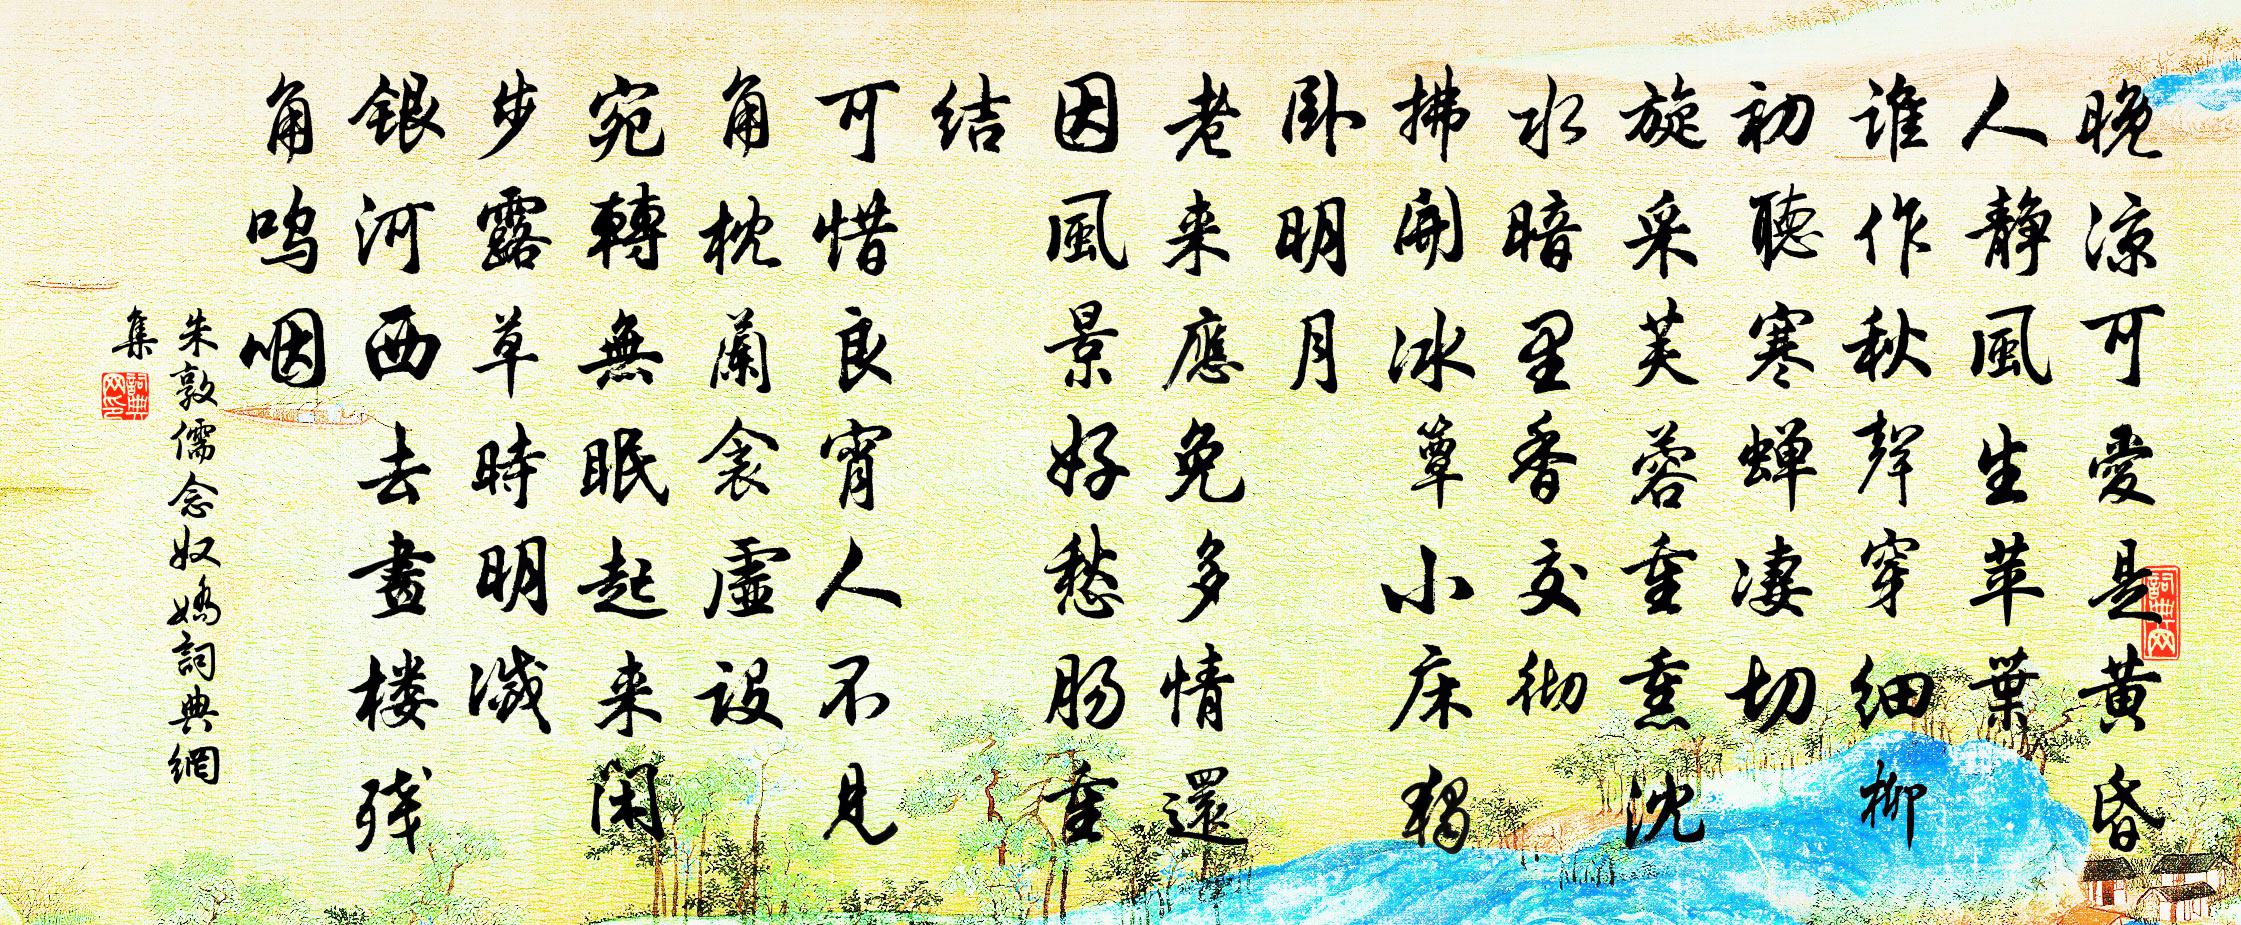 晚凉可愛是黄昏
人静風生苹葉
谁作秋聲穿細柳
初聽寒蝉凄切
旋采芙蓉重熏沈
水暗里香交彻
拂開冰簟小床獨
卧明月
老来應免多情還
因風景好愁肠重
结
可惜良宵人不見
角枕蘭衾虚設
宛轉無眠起来闲
步露草時明滅
銀河西去畫楼残
角呜咽
朱敦儒念奴嬌詞典網
集
詞典网印
詞典网